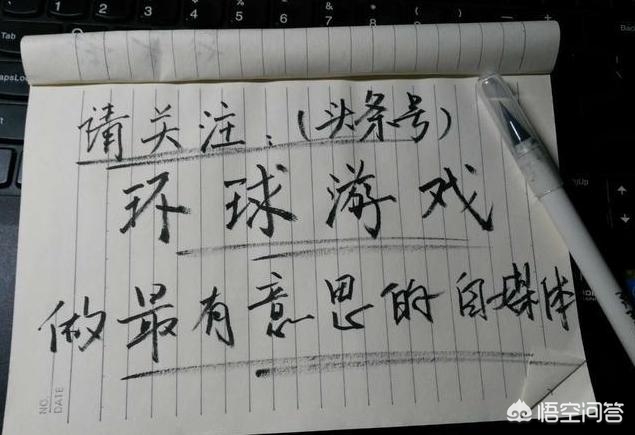 请关注:(头条号)
环球游戏
做最有意思的自媒体
NO.
DATE
悟空问答